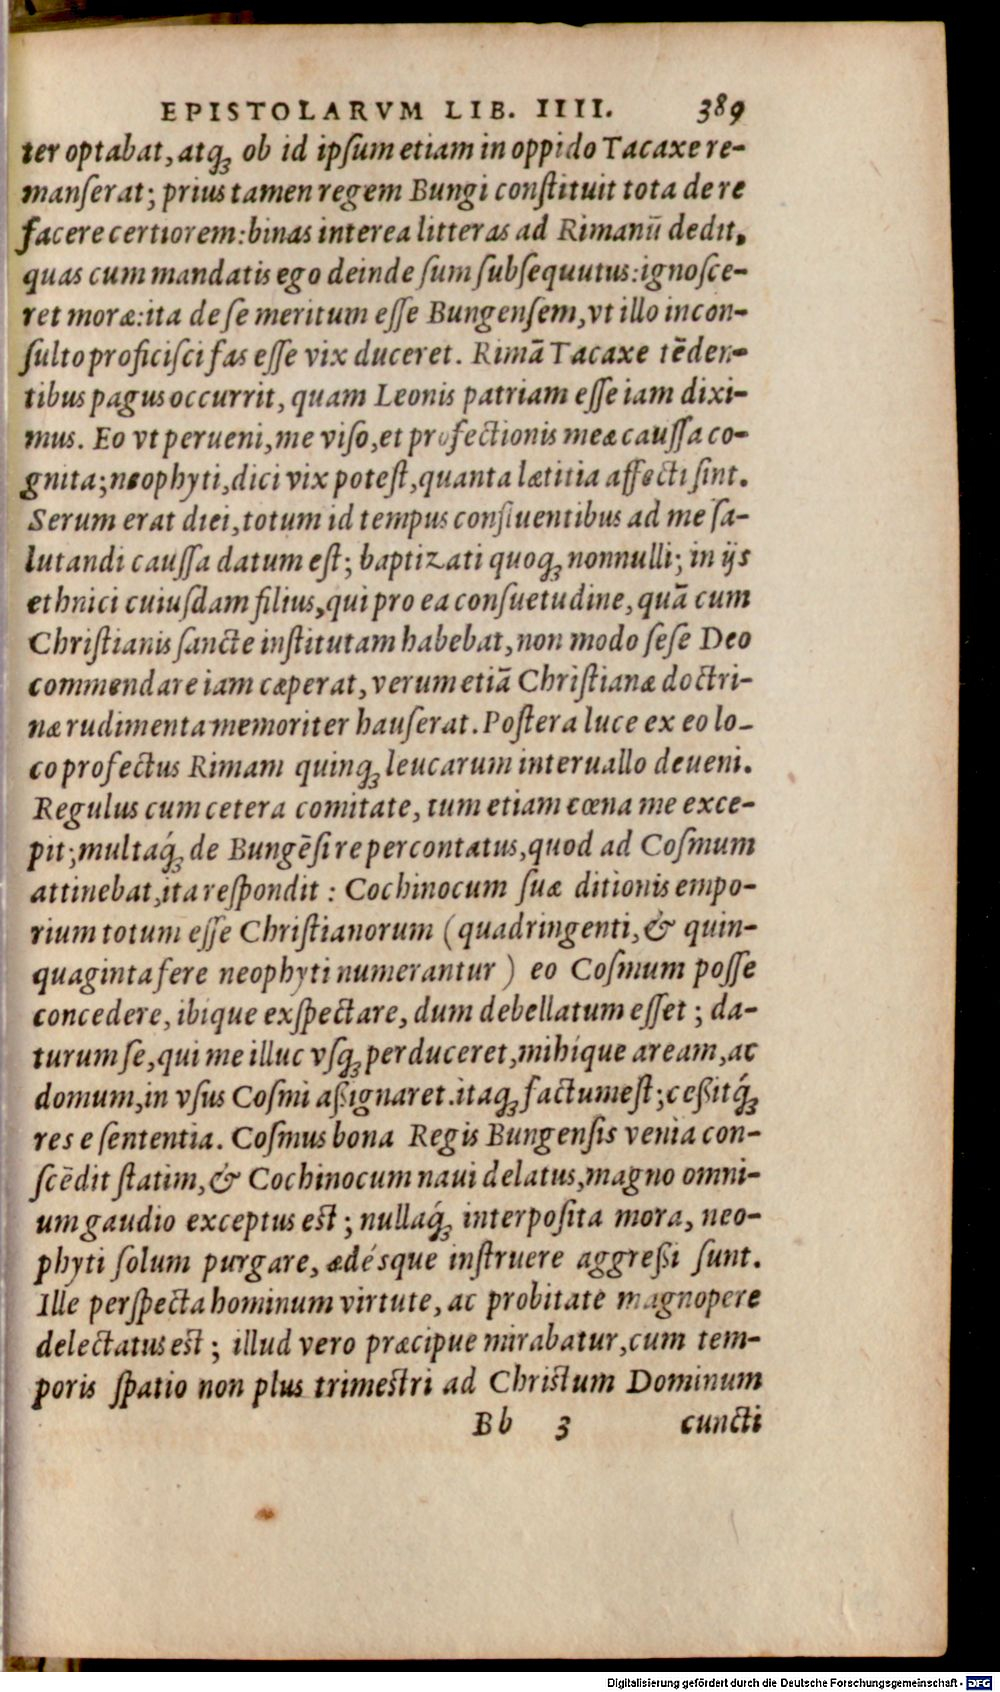 EPISTOLARVM LIB. IIII. 389
ter optabat, atqꝫ ob id ipſum etiam in oppido Tacaxe re-
manſerat; prius tamen regem Bungi conſtituit tota de re
facere certiorem: binas interea litteras ad Rimanū dedit,
quas cum mandatis ego deinde ſum ſubſequutus: ignoſce-
ret moræ: ita de ſe meritum eſſe Bungenſem, vt illo incon-
ſulto proficiſci fas eſſe vix duceret. Rimā Tacaxe tēden-
tibus pagus occurrit, quam Leonis patriam eſſe iam dixi-
mus. Eo vt perueni, me viſo, et profectionis meæ cauſſa co-
gnita; neophyti, dici vix poteſt, quanta lætitia affecti ſint.
Serum erat diei, totum id tempus confluentibus ad me ſa-
lutandi cauſſa datum eſt; baptizati quoqꝫ nonnulli; in ijs
ethnici cuiuſdam filius, qui pro ea conſuetudine, quā cum
Chriſtianis ſancte inſtitutam habebat, non modo ſeſe Deo
commendare iam cæperat, verum etiā Chriſtianæ doctri-
næ rudimenta memoriter hauſerat. Poſtera luce ex eo lo-
co profectus Rimam quinqꝫ leucarum interuallo deueni.
Regulus cum cetera comitate, tum etiam cœna me exce-
pit; multaq́ꝫ de Bungēſi re percontatus, quod ad Coſmum
attinebat, ita reſpondit: Cochinocum ſuæ ditionis empo-
rium totum eſſe Chriſtianorum (quadringenti, & quin-
quaginta fere neophyti numerantur) eo Coſmum poſſe
concedere, ibique exſpectare, dum debellatum eſſet; da-
turum ſe, qui me illuc vſqꝫ perduceret, mihíque aream, ac
domum, in vſus Coſmi aßignaret. itaqꝫ factum eſt; ceßitq́ꝫ
res e ſententia. Coſmus bona Regis Bungenſis venia con-
ſcēdit ſtatim, & Cochinocum naui delatus, magno omni-
um gaudio exceptus est; nullaq́ꝫ interpoſita mora, neo-
phyti ſolum purgare, ædésque inſtruere aggreßi ſunt.
Ille perſpecta hominum virtute, ac probitate magnopere
delectatus est; illud vero præcipue mirabatur, cum tem-
poris ſpatio non plus trimestri ad Christum Dominum
Bb 3 cuncti
Digitalisierung gefördert durch die Deutsche Forschungsgemeinschaft - DFG